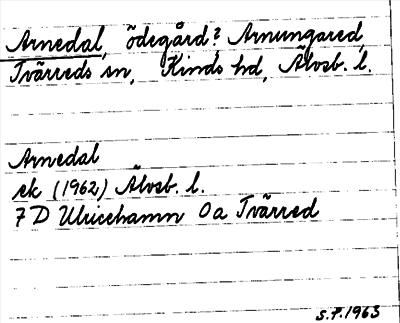 Arnedal, ödegård? Arnungared,
Tvärreds sn, Kinds hd, Älvsb. l.
Arnedal
ek (1962) Älvsb. l.
7 D Ulricehamn 0a Tvärred
S.P. 1963